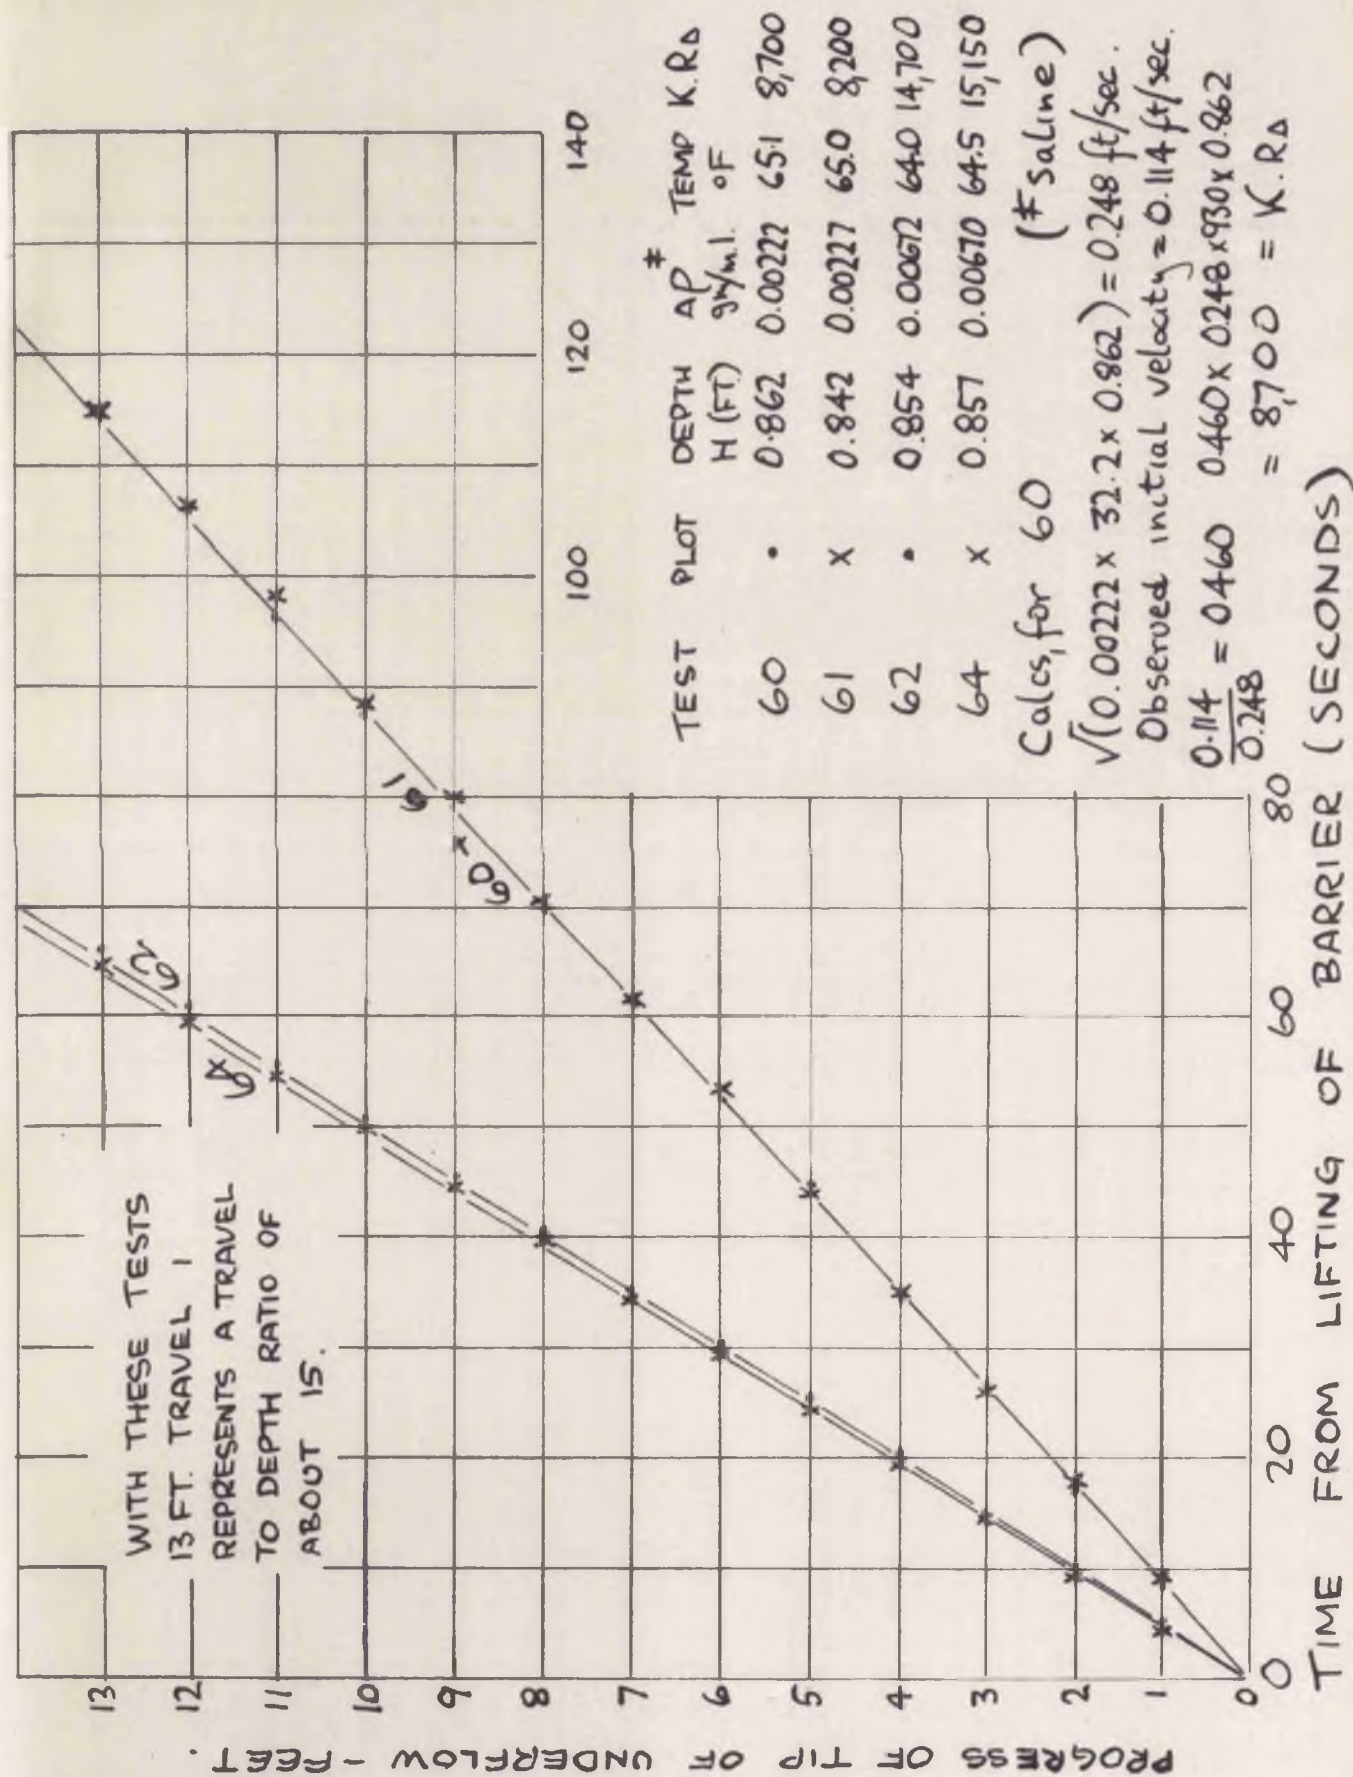 PROGRESS OF TIP OF UNDERFLOW - FEET.
13
12
11
10
9
8
7
6
5
4
3
2
1
0
WITH THESE TESTS
13 FT. TRAVEL 1
REPRESENTS A TRAVEL
TO DEPTH RATIO OF
ABOUT 15.
64
62
60
61
0 20 40 60 80
100 120 140
TIME FROM LIFTING OF BARRIER (SECONDS)
TEST PLOT DEPTH ΔP ‡ TEMP K.RΔ
H (FT.) gm/ml. OF
60 • 0.862 0.00222 65.1 8,700
61 x 0.842 0.00227 65.0 8,200
62 • 0.854 0.00672 64.0 14,700
64 x 0.857 0.00670 64.5 15,150
Calcs, for 60 (‡ Saline)
√(0.00222 x 32.2 x 0.862) = 0.248 ft/sec.
Observed initial velocity = 0.114 ft/sec.
0.114 = 0.460 0.460 x 0.248 x 930 x 0.862
0.248
= 8,700 = K.RΔ